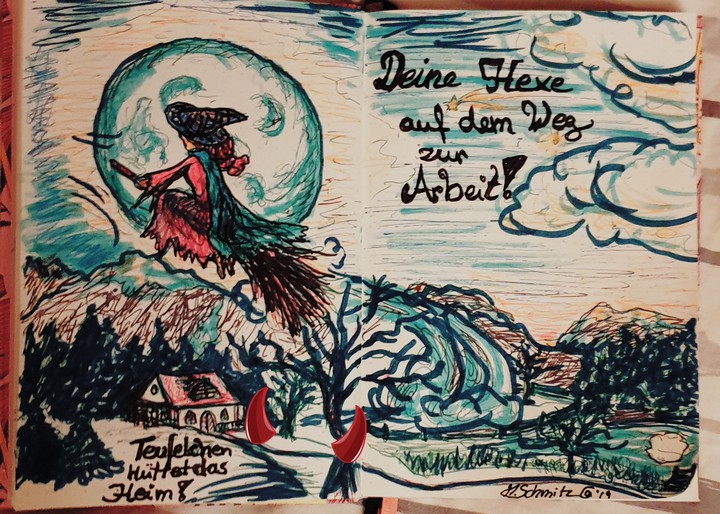 Deine Hexe
auf dem Weg
zur
Arbeit!
Teufelchen
hüttet das
Heim!
Y. Schmitz '19